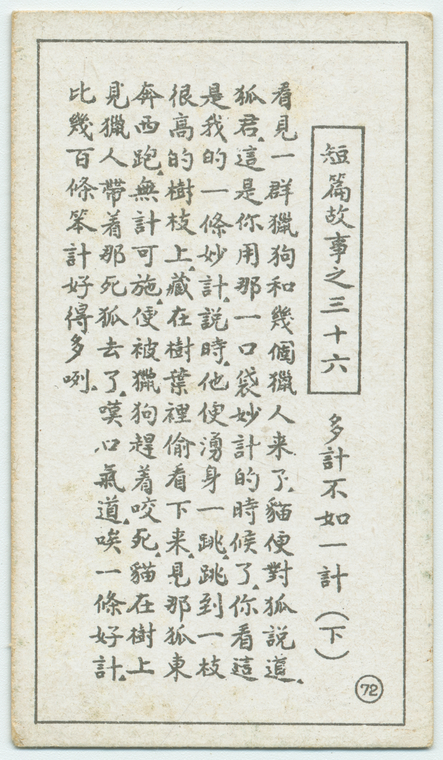 短篇故事之三十六
多計不如一計（下）
72
看見一群獵狗和幾個獵人来了.貓便對狐説道.
狐君.這是你用那一口袋妙計的時候了.你看這
是我的一條妙計.説時.他便湧身一跳.跳到一枝
很高的樹枝上.藏在樹葉裡偷看下来.見那狐東
奔西跑.無計可施.便被獵狗趕着咬死.貓在樹上
見獵人帶着那死狐去了.嘆口氣道.唉一條好計.
比幾百條笨計好得多咧.